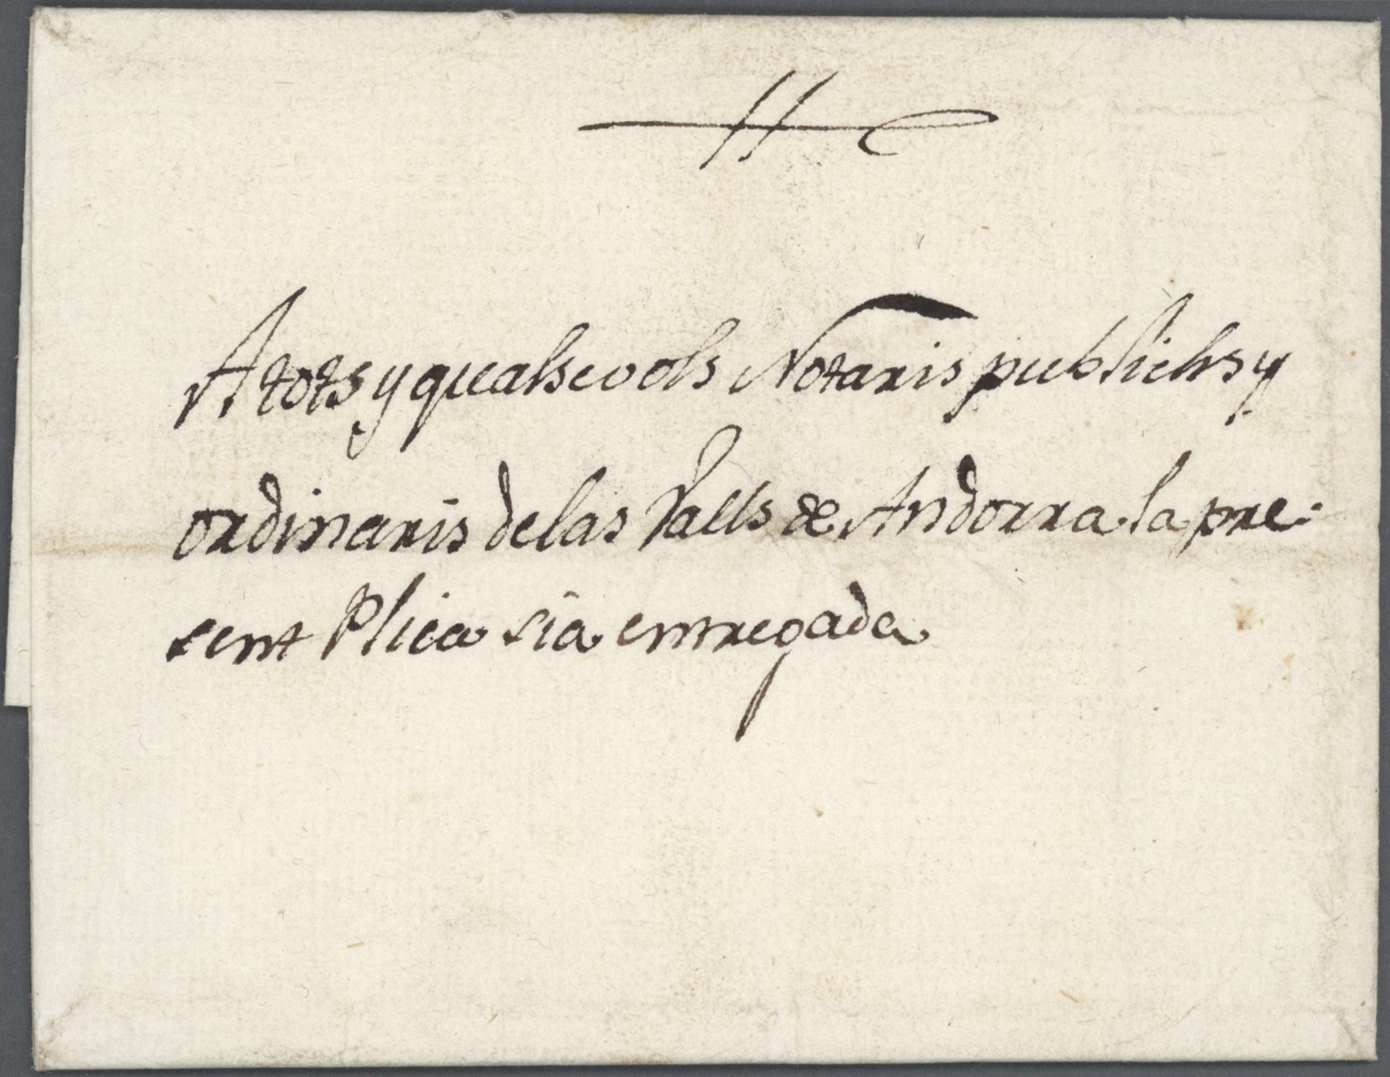 A tots y qualsevols Notaris publichs y
ordinaris de las Valls de Andorra la pre-
sent Plica sia entregada